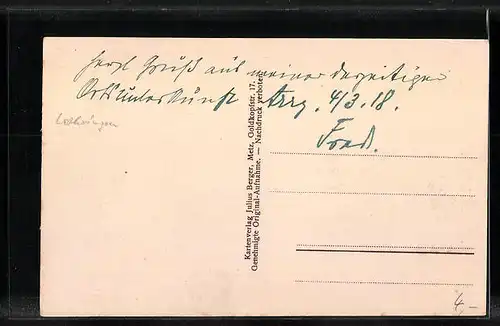 Herzl. Gruß aus meiner derzeitigen
Ortsunterkunft Arry. 4/3.18.
Fred.
Lothringen
Kartenverlag Julius Berger, Metz, Goldkopfstr. 17.
Genehmigte Original-Aufnahme. — Nachdruck verboten.
4,-